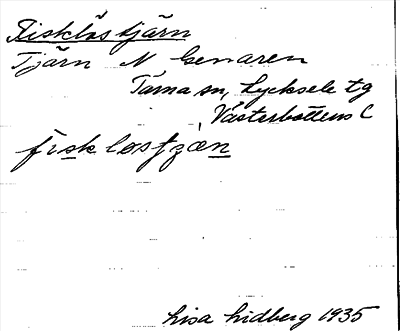 Fisklöstjärn
Tjärn N Genaren
Tärna sn, Lycksele tg
Västerbottens L
fisklostjæn
Lisa Lidberg 1935